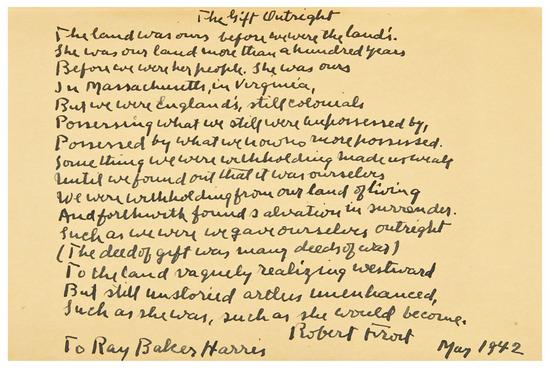 The Gift Outright
The land was ours before we were the land's.
She was our land more than a hundred years
Before we were her people. She was ours
In Massachusetts, in Virginia,
But we were England's, still colonials
Possessing what we still were unpossessed by,
Possessed by what we now no more possessed.
Something we were withholding made us weak
Until we found out that it was ourselves
We were withholding from our land of living
And forthwith found salvation in surrender.
Such as we were we gave ourselves outright
(The deed of gift was many deeds of war)
To the land vaguely realizing westward
But still unstoried artless unenhanced,
Such as she was, such as she would become.
Robert Frost
To Ray Baker Harris
May 1942